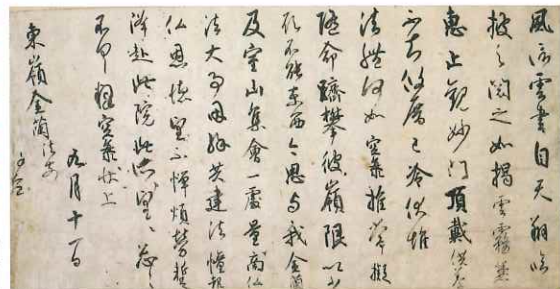 風信雲書自天翔臨
披之閲之如揭雲霧兼
惠止觀妙門頂戴供養
不知攸厝已冷伏惟
法體何如空海推常擬
隨命躋攀彼嶺限以少
願不能東西今思与我金蘭
及室山集會一處量商仏
法大事因緣共建法幢報
仏恩德望不憚煩勞蹔
降赴此院此所望々々忩々
不具釋空海狀上
九月十一日
東嶺金蘭法前
謹空